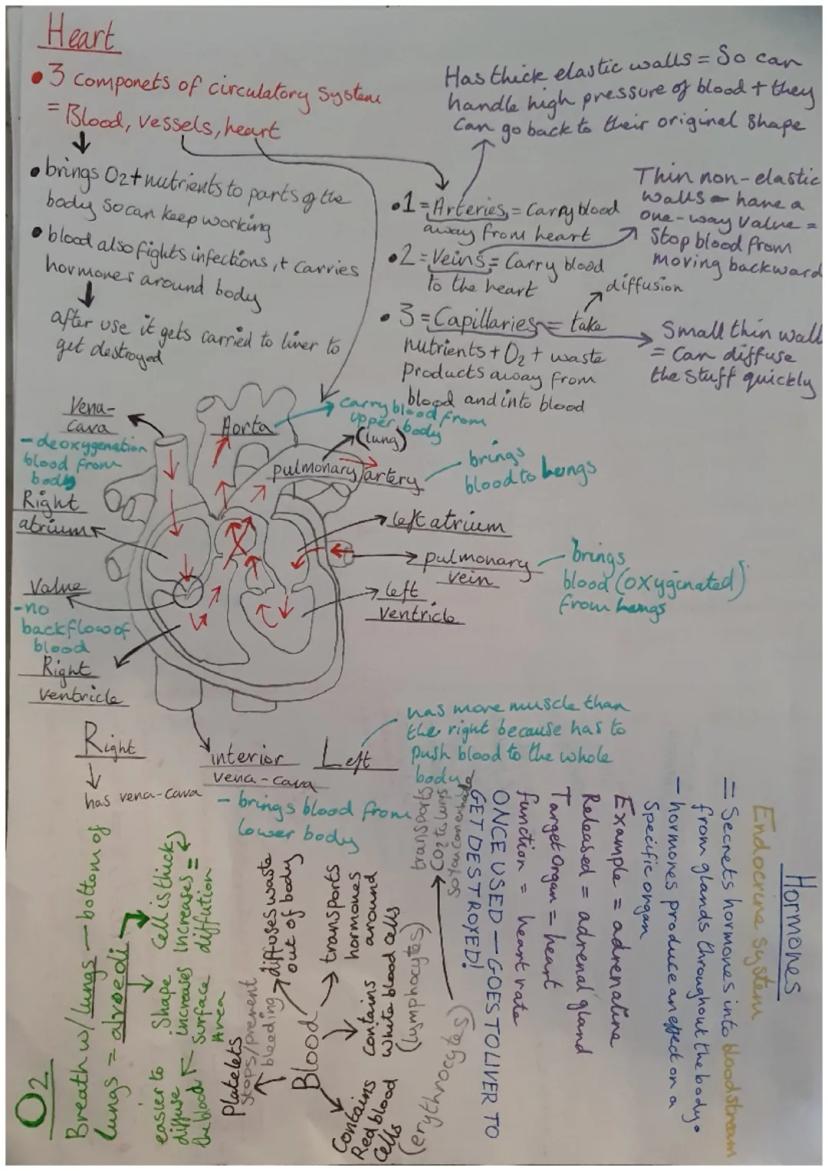 Heart
• 3 componets of circulatory system
= Blood, vessels, heart
• brings O2 + nutrients to parts of the
body so can keep working
• blood also fights infections, it carries
hormones around body
after use it gets carried to liver to
get destroyed
Has thick elastic walls = So can
handle high pressure of blood + they
can go back to their original shape
• 1 = Arteries = Carry blood
away from heart
• 2 = Veins = Carry blood
to the heart
Thin non-elastic
walls - have a
one-way value =
Stop blood from
moving backward
diffusion
• 3 = Capillaries = take
nutrients + O2 + waste
products away from
blood and into blood
Small thin wall
= can diffuse
the stuff quickly
Vena-
cava
- deoxygenation
blood from
body
Aorta
carry blood from
upper body
(lung)
pulmonary artery
brings
blood to lungs
Right
atrium
left atrium
pulmonary
vein
brings
blood (oxyginated)
from lungs
Value
- no
backflow of
blood
left
ventricle
Right
ventricle
Right
has vena-cava
interior
vena-cava
- brings blood from
lower body
Left
has more muscle than
the right because has to
push blood to the whole
body
Hormones
Endocrine system
= Secrets hormones into bloodstream
from glands throughout the body.
- hormones produce an effect on a
Specific organ
Example = adrenaline
Released = adrenal gland
Target organ = heart
function = heart rate
ONCE USED - GOES TO LIVER TO
GET DESTROYED!
O2
Breath w/ lungs - bottom of
lungs = alveoli
Cell is thick
Increases =
diffution
Shape
increases
surface
Area
easier to
diffuse
the blood
Blood
Platelets
Stops/prevent
bleeding
diffuses waste
out of body
transports
hormones
around
Contains
White blood cells
(lymphocytes)
Contains
Red blood
cells
(erythrocytes)
transports
CO2 to lungs